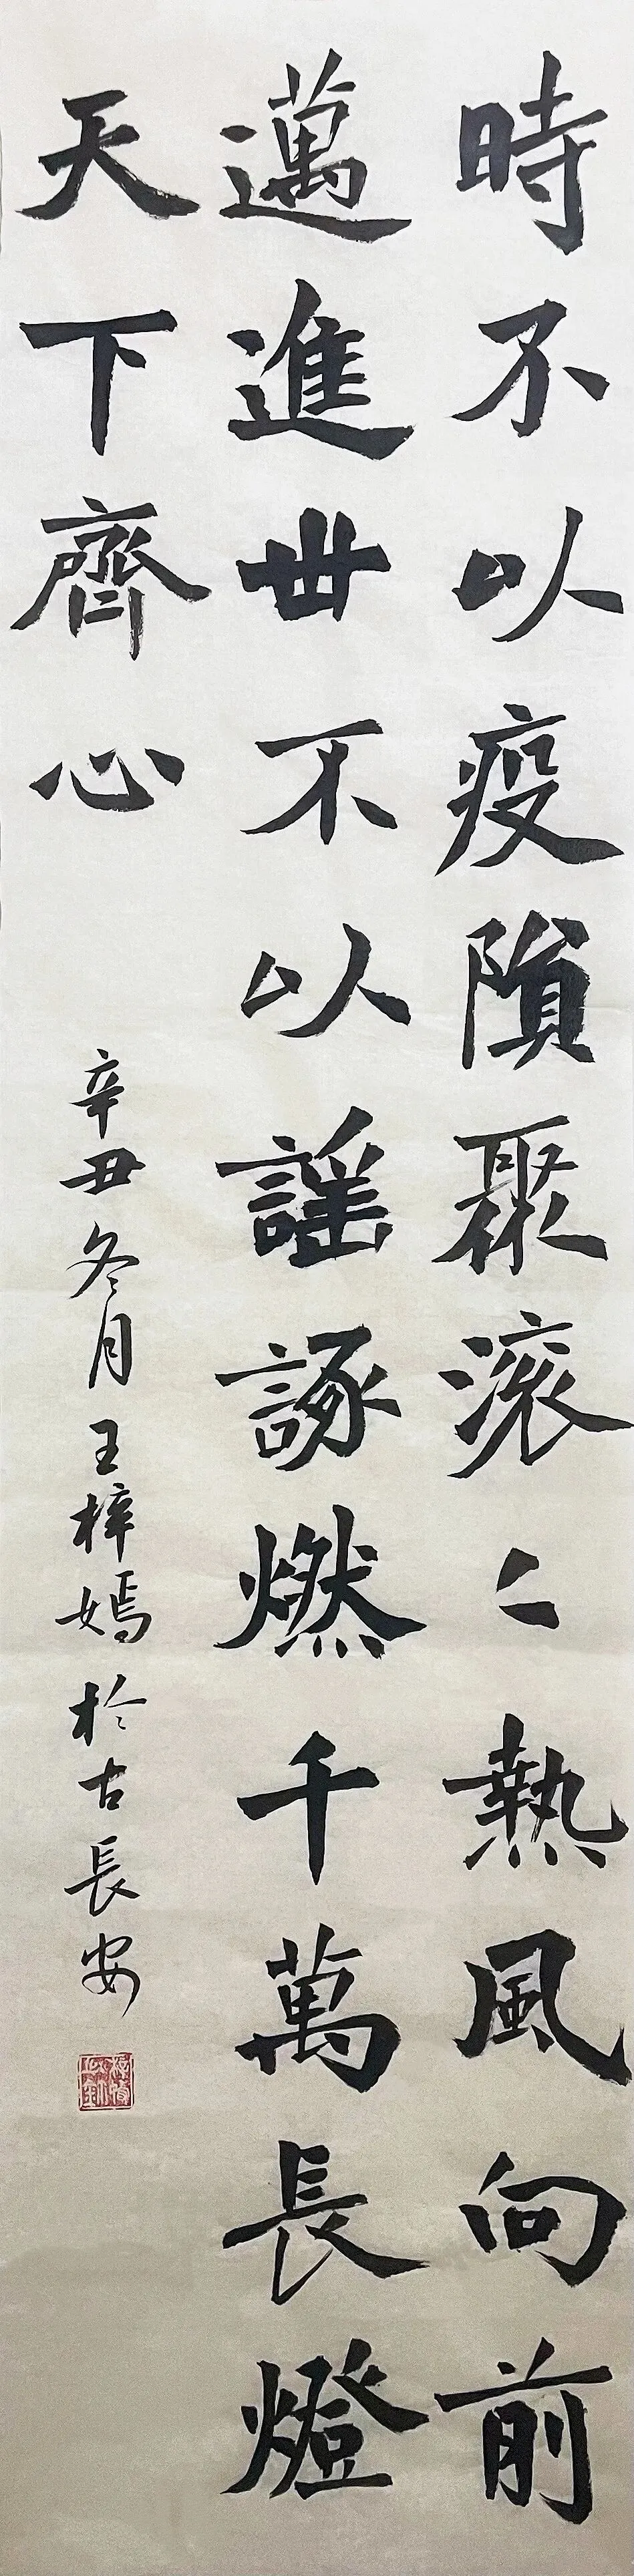 時不以疫隕聚滚〻熱風向前
邁進世不以謠諑燃千萬長燈
天下齊心
辛丑冬月王梓嫣於古長安